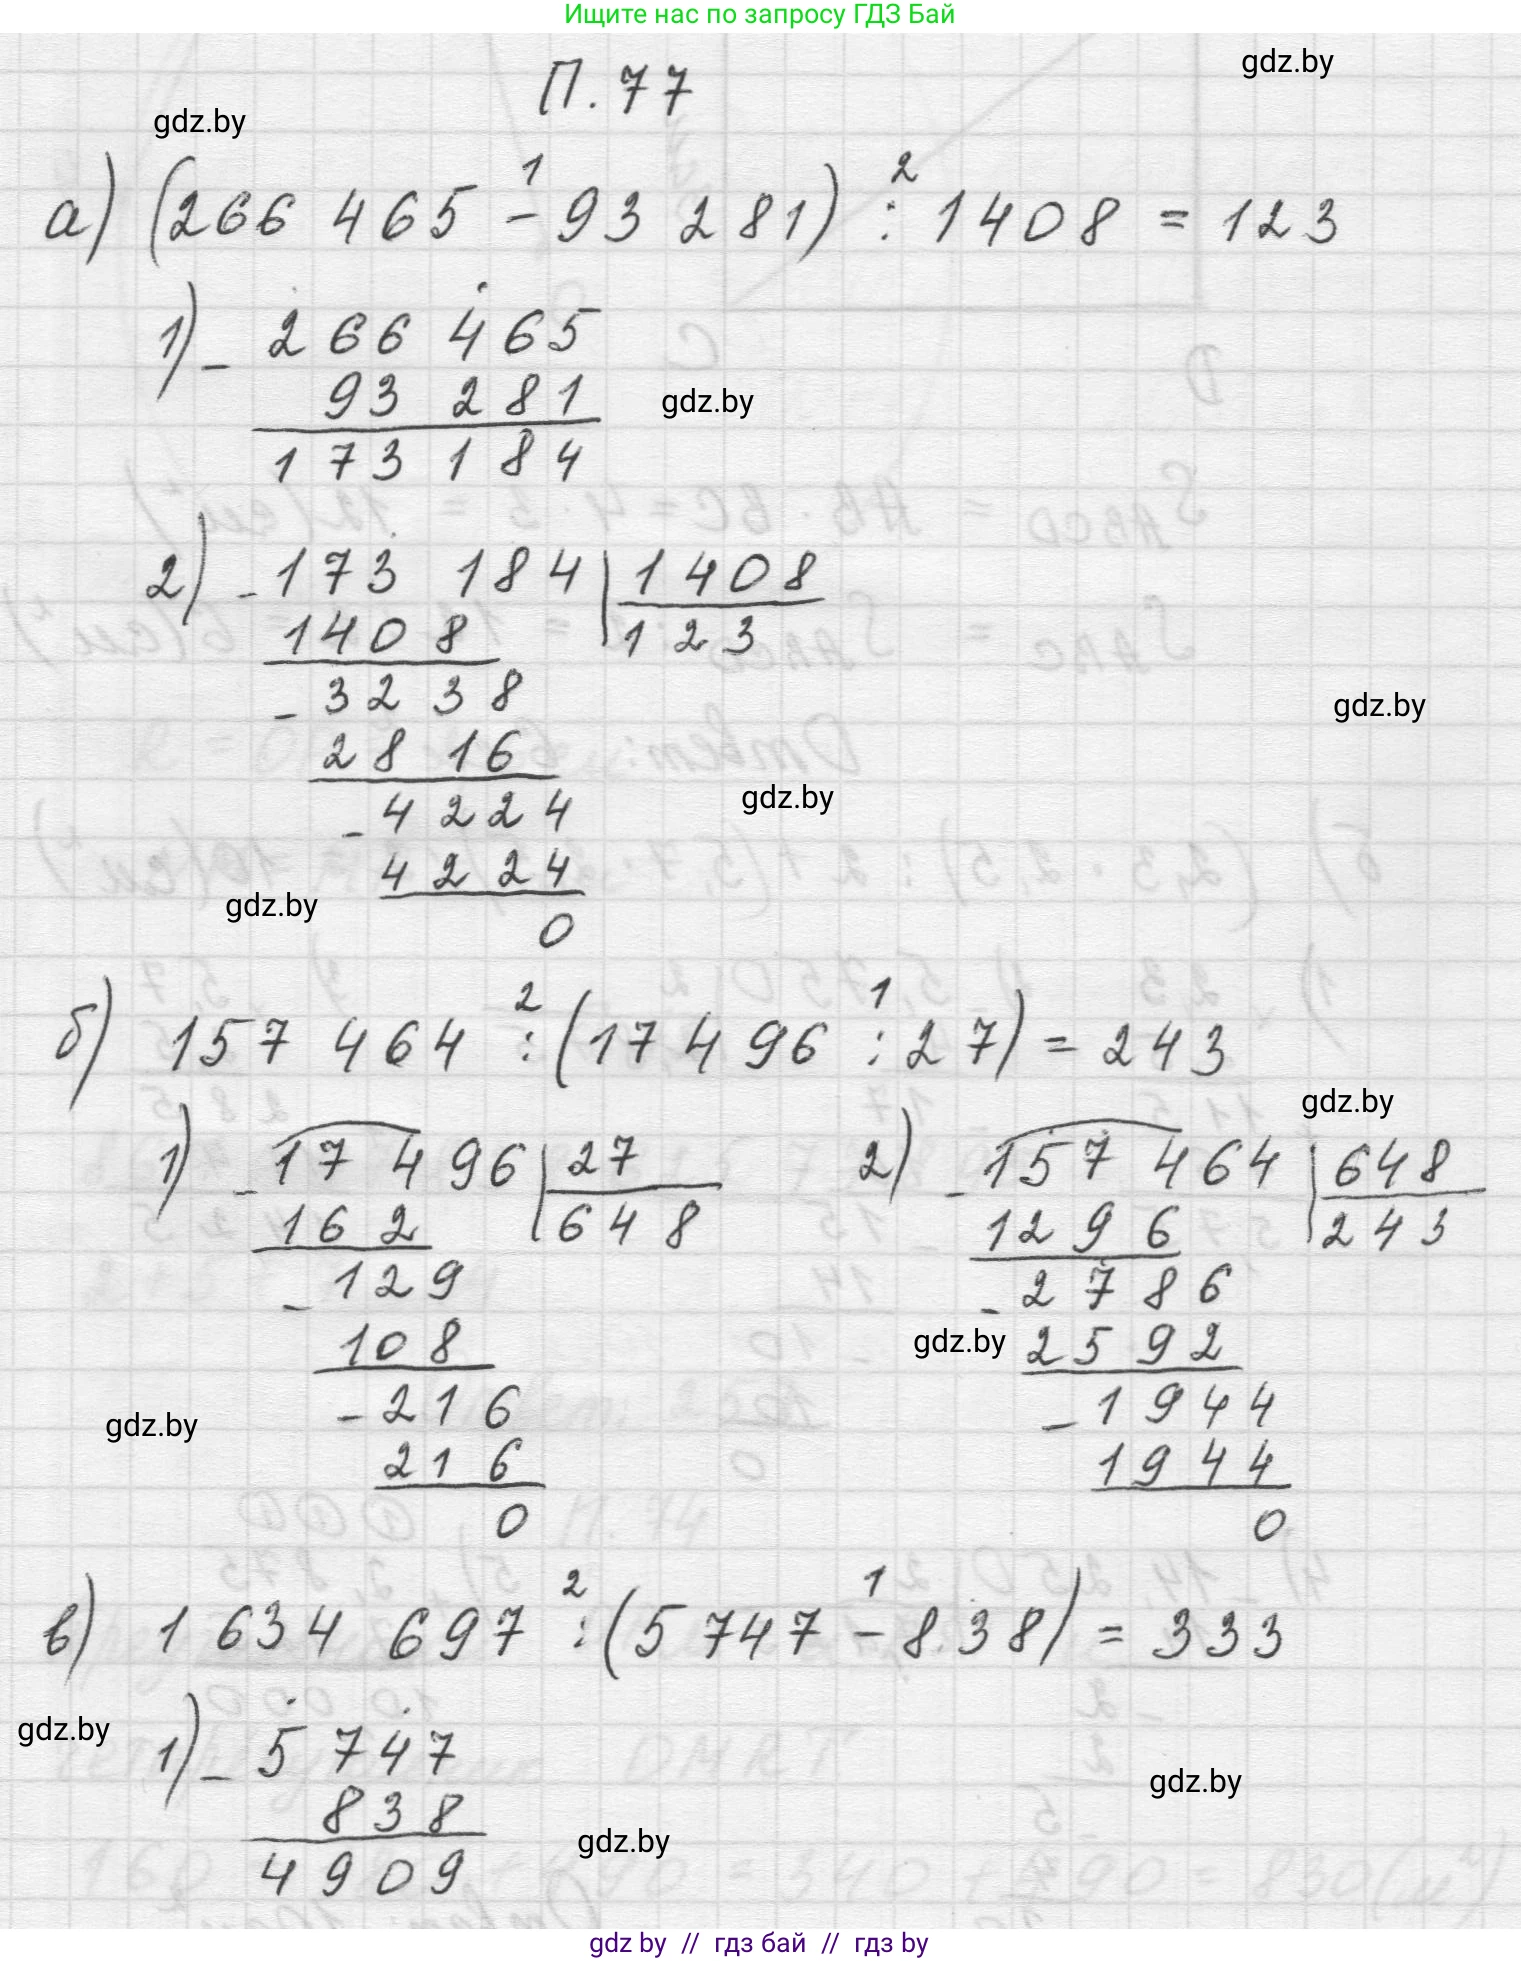 Ищите нас по запросу ГДЗ Бай
П.77
gdz.by
gdz.by
1 2
а) (266 465 - 93 281) : 1408 = 123
1) - 266 465
93 281
gdz.by
173 184
2) - 173 184 | 1408
1408 123
- 3238
gdz.by
2816
- 4224
gdz.by
4224
gdz.by
0
2 1
б) 157 464 : (17 496 : 27) = 243
gdz.by
1) - 17 496 | 27 2) - 157 464 | 648
162 648 1296 243
- 129 - 2786
108 gdz.by 2592
- 216 - 1944
gdz.by
216 1944
0 0
2 1
в) 1 634 697 : (5 747 - 838) = 333
gdz.by
1) - 5 747
gdz.by
838
gdz.by
4909
gdz by // гдз бай // гдз by